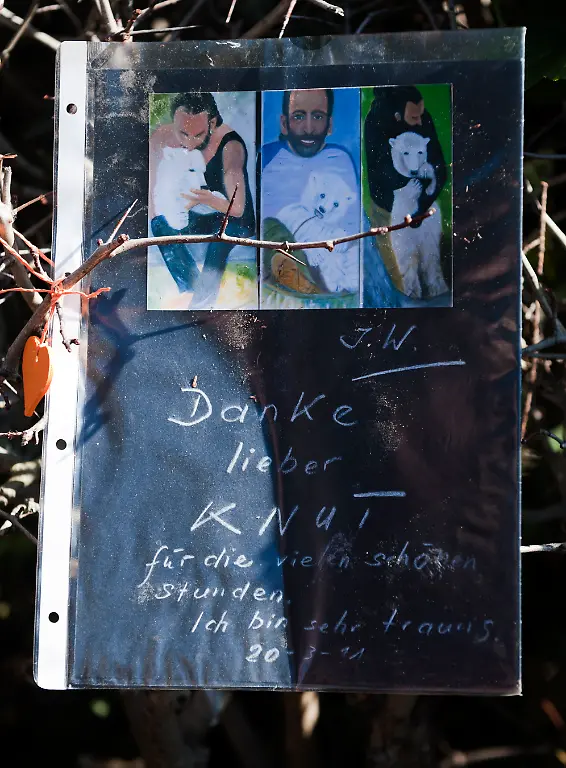 J.W.
Danke
lieber
KNUT
für die vielen schönen
stunden.
Ich bin sehr traurig.
20-3-11